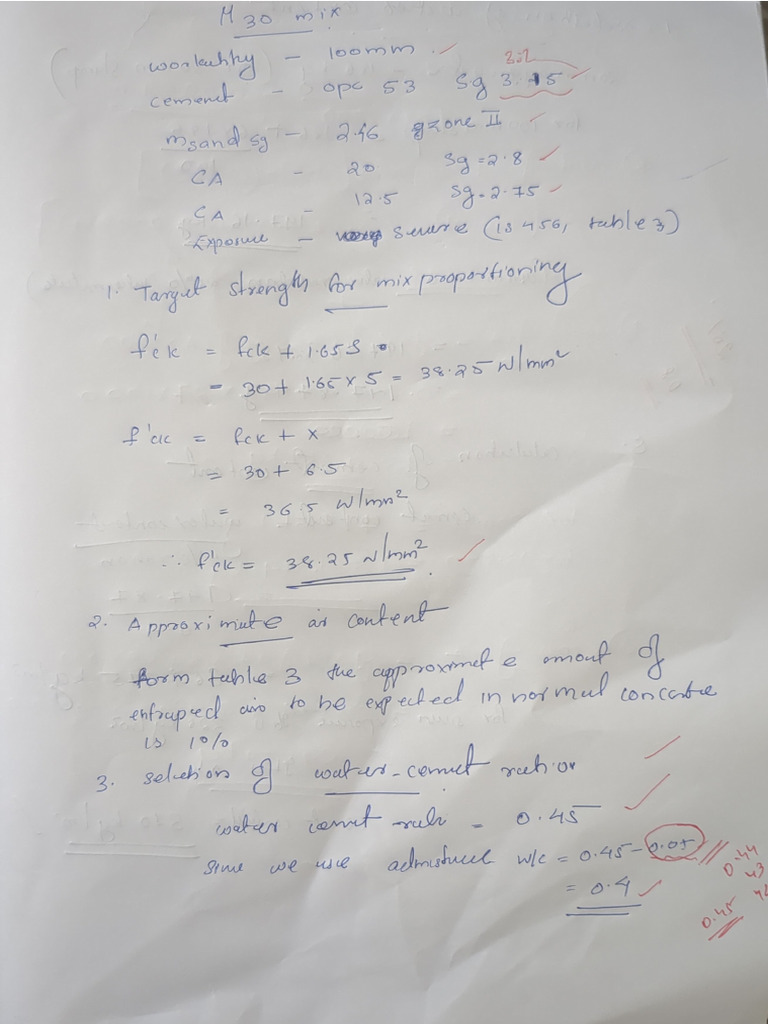 M30 mix
workability - 100mm
3.12
cement - opc 53 Sg 3.15
msand sg - 2.46 zone II
CA - 20 Sg = 2.8
CA - 12.5 Sg = 2.75
Exposure - severe (is 456, table 3)
1. Target strength for mix proportioning
f'ck = fck + 1.65S
= 30 + 1.65 x 5 = 38.25 N/mm²
f'ck = fck + x
= 30 + 6.5
= 36.5 N/mm²
∴ f'ck = 38.25 N/mm²
2. Approximate air content
form table 3 the approximate amout of
entraped air to be expected in normal concrete
is 1%
3. selection of water-cement ratio
water cement ratio = 0.45
Since we use admixture w/c = 0.45 - 0.05
= 0.4
0.44
43
42
0.45